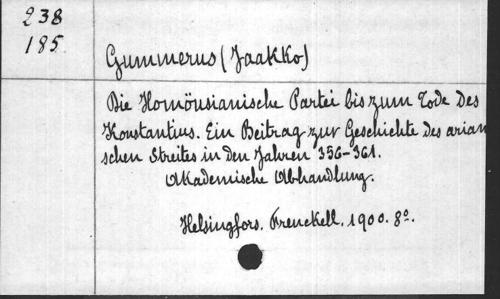 238
185.
Gummerus (Jaakko)
Die Homöusianische Partei bis zum Tode des
Konstantius. Ein Beitrag zur Geschichte des arian
schen Streites in den Jahren 356-361.
Akademische Abhandlung.
Helsingfors. Frenckell. 1900. 8º.